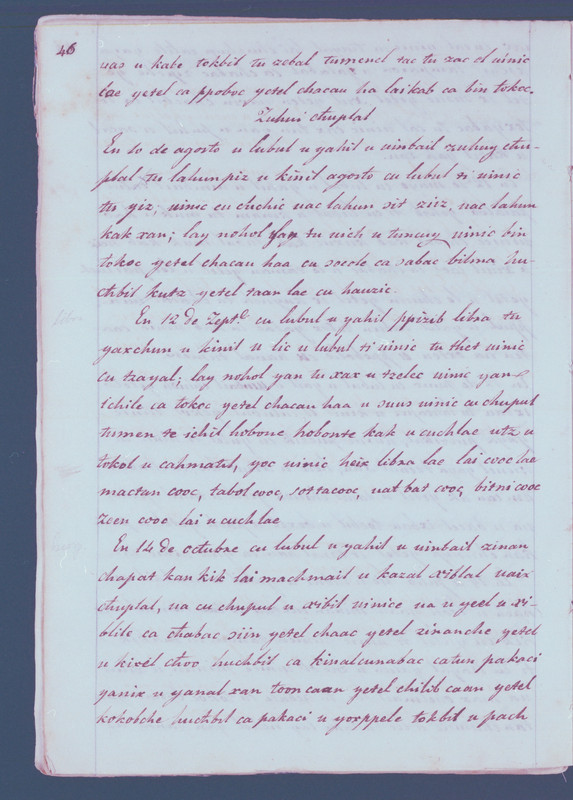 46
uas u kabe tokbil tu zebal tumenel tac tu zac ol uinic
lae yetel ca ppoboc yetel chacau ha laikab ca bin tokoc.
Zuhui chuplal
En 10 de agosto u lubul u yahil u uinbail zuhuy chu-
plal tu lahunpiz u kinil agosto cu lubul ti uinic
tu yiz, uinic cu chichic uac lahun sit ziiz, uac lahun
kak xan; lay nohol yan tu uich u tuncuy uinic bin
tokoc yetel chacau haa cu socole ca sabac bilma hu-
chbil kutz yetel taan lae cu hauzic.
En 12 de Zept.e cu lubul u yahil ppizib libra tu
yaxchun u kinil u lic u lubul ti uinic tu thet uinic
cu tzayal; lay nohol yan tu xax u tzelec uinic yan
ichile ca tokoc yetel chacau haa u suus uinic cu chupul
tumen te ichil hobone hobonte kak u cuchlae utz u
tokol u cahmatul, yoc uinic heix libra lae lai cooc lae
mactan cooc, tabol cooc, sottacooc, uat bat cooc, bitni cooc
zoen cooc lai u cuch lae
En 14 de octubre cu lubul u yahil u uinbail zinan
chapat kan kik lai machmail u kazal xiblal uaix
chuplal, ua cu chupul u xibil uinice ua u yeel u xi-
blile ca chabac siin yetel chaac yetel zinanche yetel
u kixel choo huchbil ca kinalcunabac catun pakaci
yanix u yanal xan tooncaan yetel chilib caan yetel
kokobche huchbil ca pakaci u yoxppele tokbil u pach